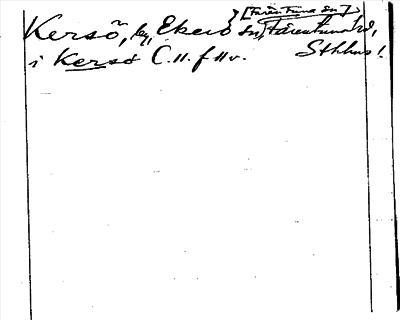 [Färentuna sn]
Kersö, by, Ekerö sn, Färentuna hd,
i Kersö C.11. f 11 v. Sthlms!